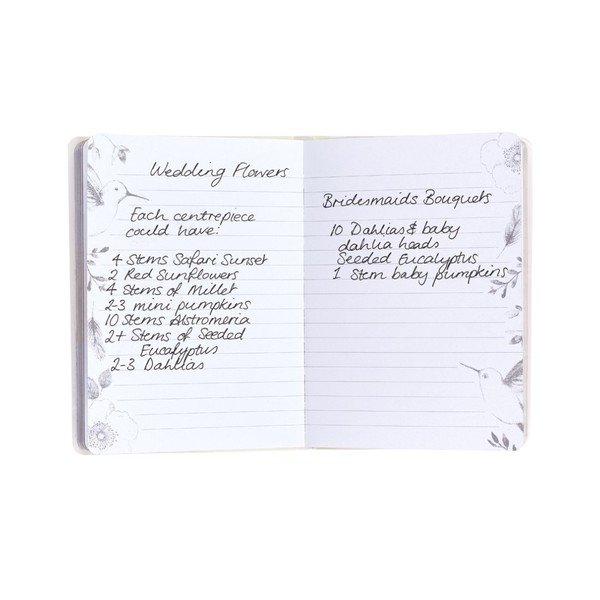 Wedding Flowers
Each centrepiece
could have:
4 Stems Safari Sunset
2 Red Sunflowers
4 Stems of Millet
2-3 mini pumpkins
10 Stems Alstromeria
2+ Stems of Seeded
Eucalyptus
2-3 Dahlias
Bridesmaids Bouquets
10 Dahlias & baby
dahlia heads
Seeded Eucalyptus
1 Stem baby pumpkins